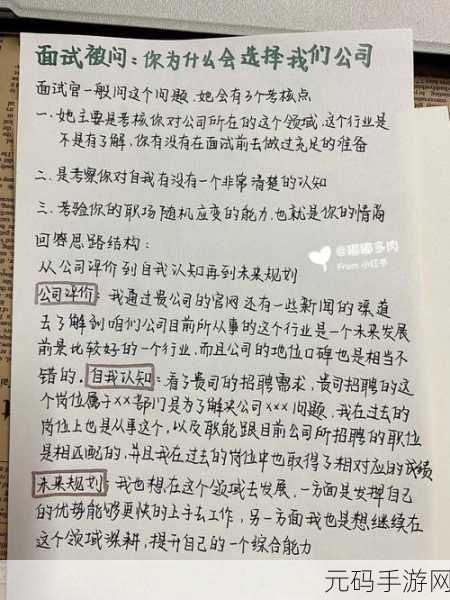 面试被问：你为什么会选择我们公司
面试官一般问这个问题.她会有3个考核点
一.她主要是考核你对公司所在的这个领域.这个行业是
不是有了解.你有没有在面试前去做过充足的准备
二.是考察你对自我有没有一个非常清楚的认知
三.考验你的职场随机应变的能力.也就是你的情商
回答思路结构：
@娜娜多肉
From 小红书
从公司评价到自我认知再到未来规划
公司评价：我通过贵公司的官网还有一些新闻的渠道
去了解到咱们公司目前所从事的这个行业是一个未来发展
前景比较好的一个行业,而且公司的地位口碑也是相当不
错的.自我认知：看了贵司的招聘需求,贵司招聘的这
个岗位属于××部门是为了解决公司×××问题.我在过去的
岗位上也是从事这个,以及职能跟目前公司所招聘的职位
是相匹配的,并且我在过去的岗位中也取得了相对应的成绩
未来规划：我也想在这个领域去发展.一方面是发挥自己
的优势能够更快的上手去工作,另一方面我也是想继续在
这个领域深耕,提升自己的一个综合能力
元码手游网